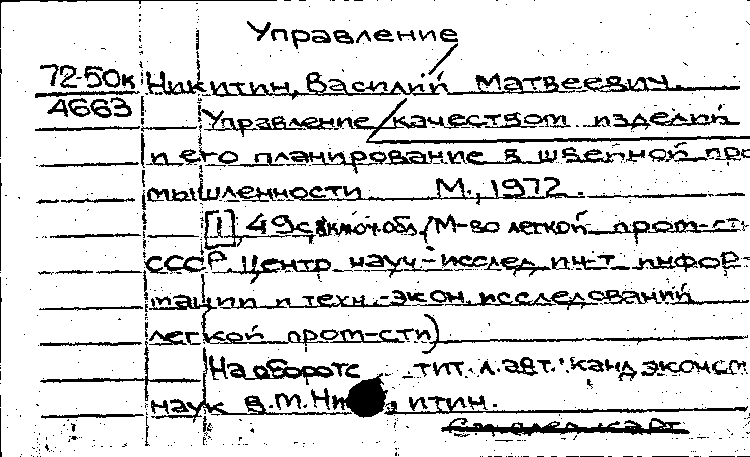 Управление
72-50к Никитин, Василий Матвеевич.
4663 Управление качеством изделий
и его планирование в швейной про-
мышленности М., 1972.
[1] 49с, включ. обл. (М-во легкой пром-сти
СССР. Центр. науч-исслед. ин-т инфор-
мации и техн.-экон. исследований
легкой пром-сти)
На обороте тит. л. авт.: канд. эконом.
наук В.М. Никитин.